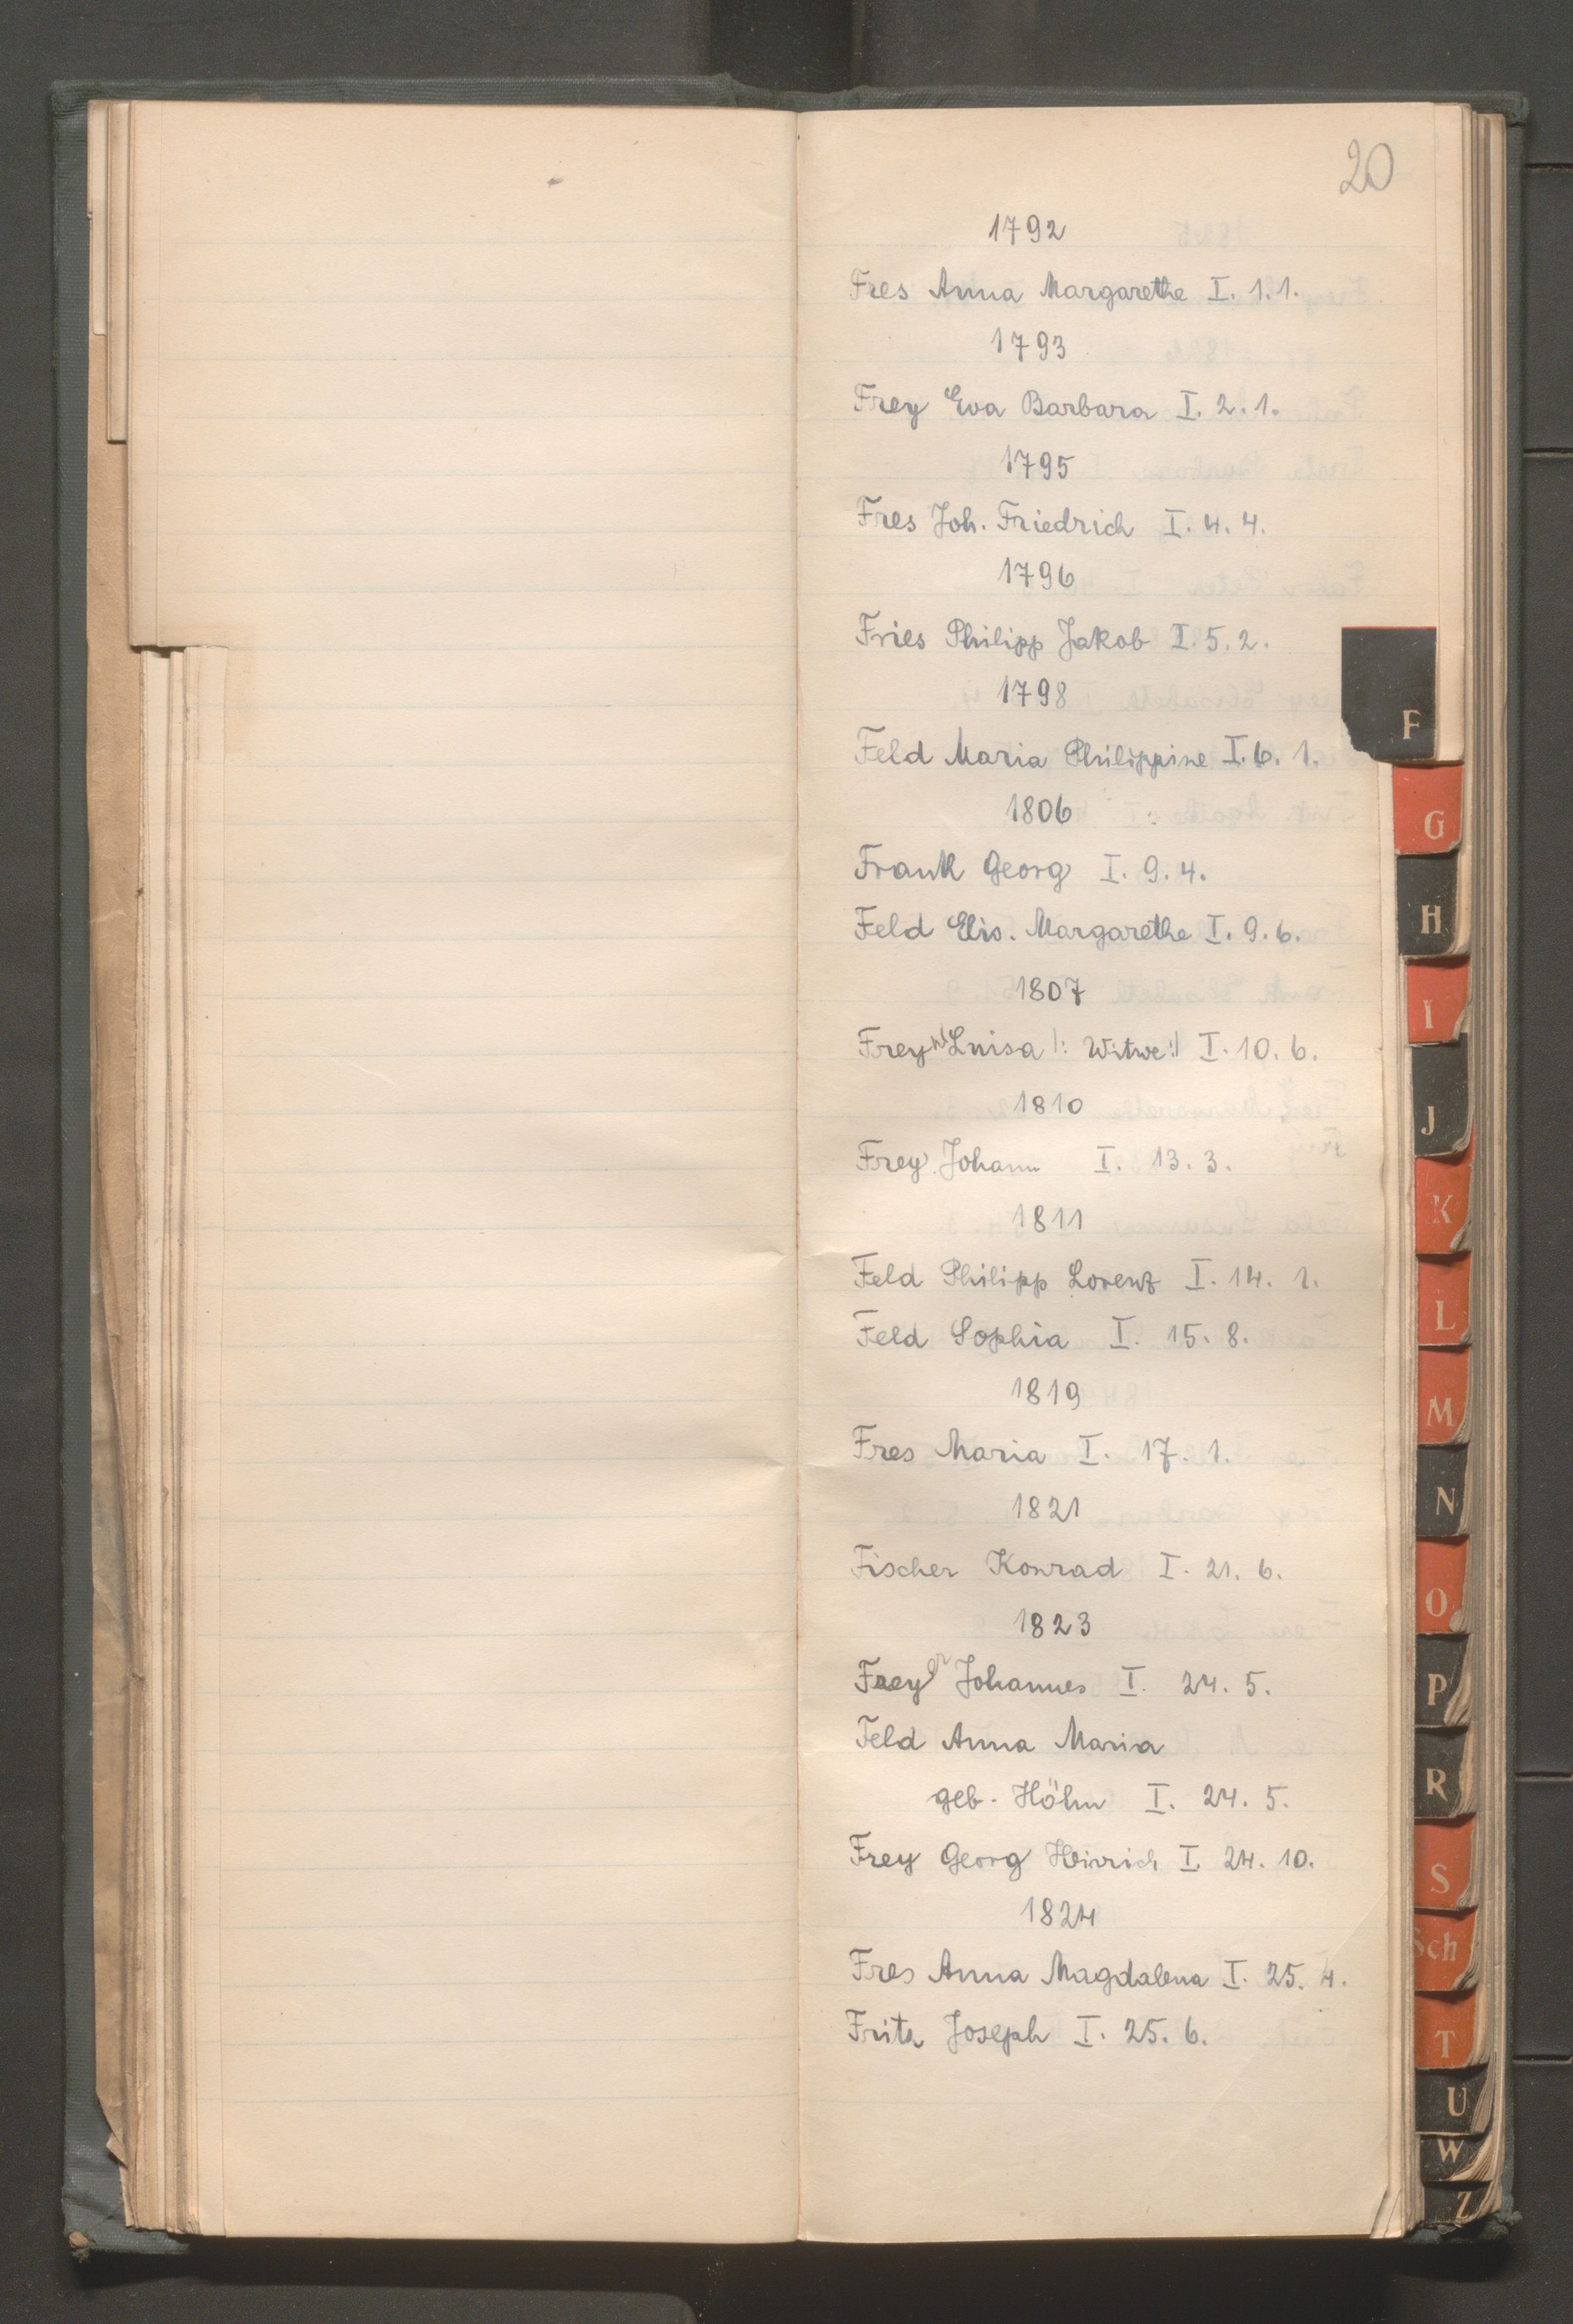 20
1792
Fres Anna Margarethe I. 1. 1.
1793
Frey Eva Barbara I. 2. 1.
1795
Fres Joh. Friedrich I. 4. 4.
1796
Fries Philipp Jakob I. 5. 2.
1798
Feld Maria Philippine I. 6. 1.
1806
Frank Georg I. 9. 4.
Feld Elis. Margarethe I. 9. 6.
1807
Frey Luisa |: Witwe :| I. 10. 6.
1810
Frey Johann I. 13. 3.
1811
Feld Philipp Lorenz I. 14. 1.
Feld Sophia I. 15. 8.
1819
Fres Maria I. 17. 1.
1821
Fischer Konrad I. 21. 6.
1823
Frey Johannes I. 24. 5.
Feld Anna Maria
geb. Höhn I. 24. 5.
Frey Georg Heinrich I. 24. 10.
1824
Fres Anna Magdalena I. 25. 4.
Fritz Joseph I. 25. 6.
F
G
H
I
J
K
L
M
N
O
P
R
S
Sch
T
U
W
Z